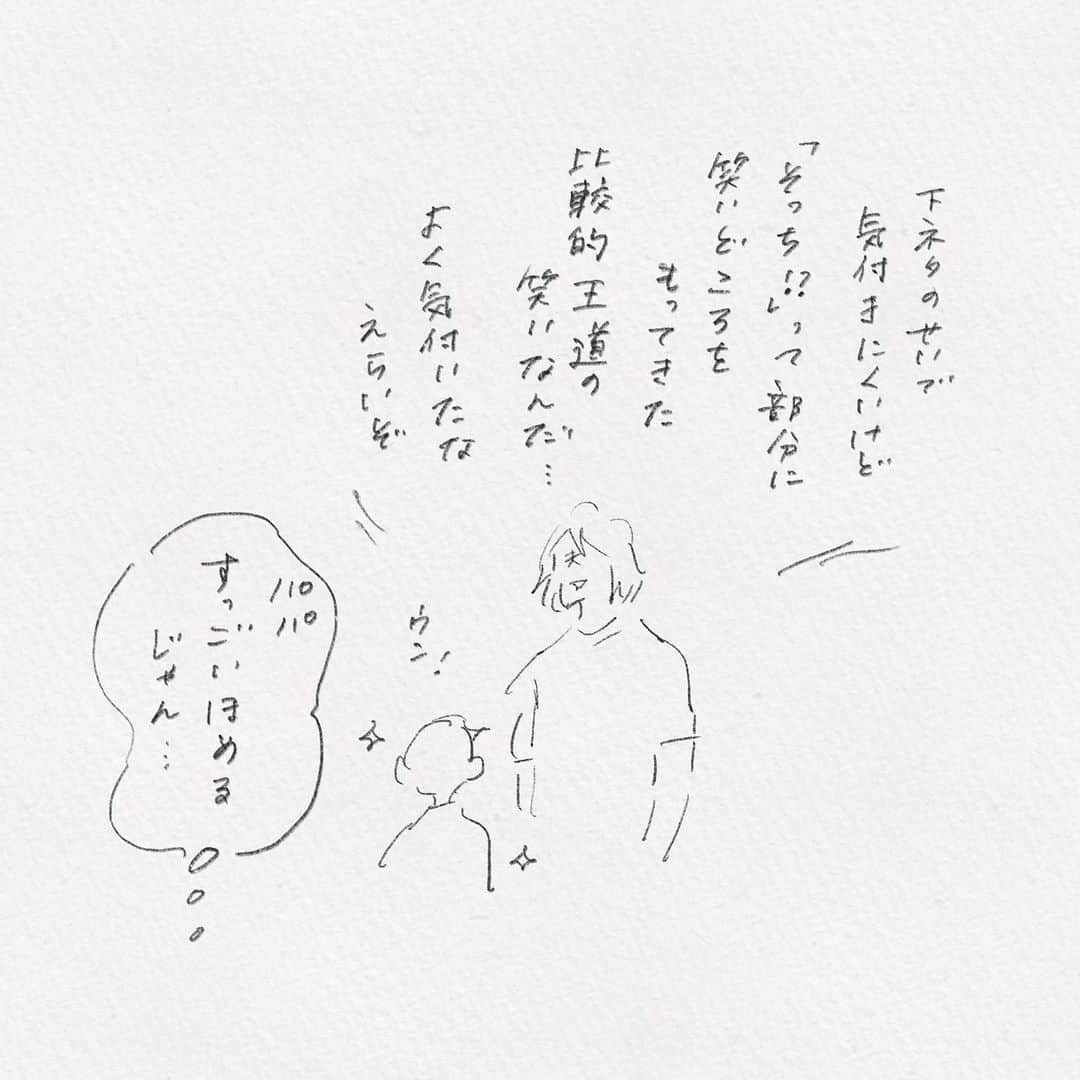 下ネタのせいで
気付きにくいけど
「そっち!?」って部分に
笑いどころを
もってきた
比較的王道の
笑いなんだ…
よく気付いたな
えらいぞ
ウン!
パパ
すっごいほめる
じゃん…